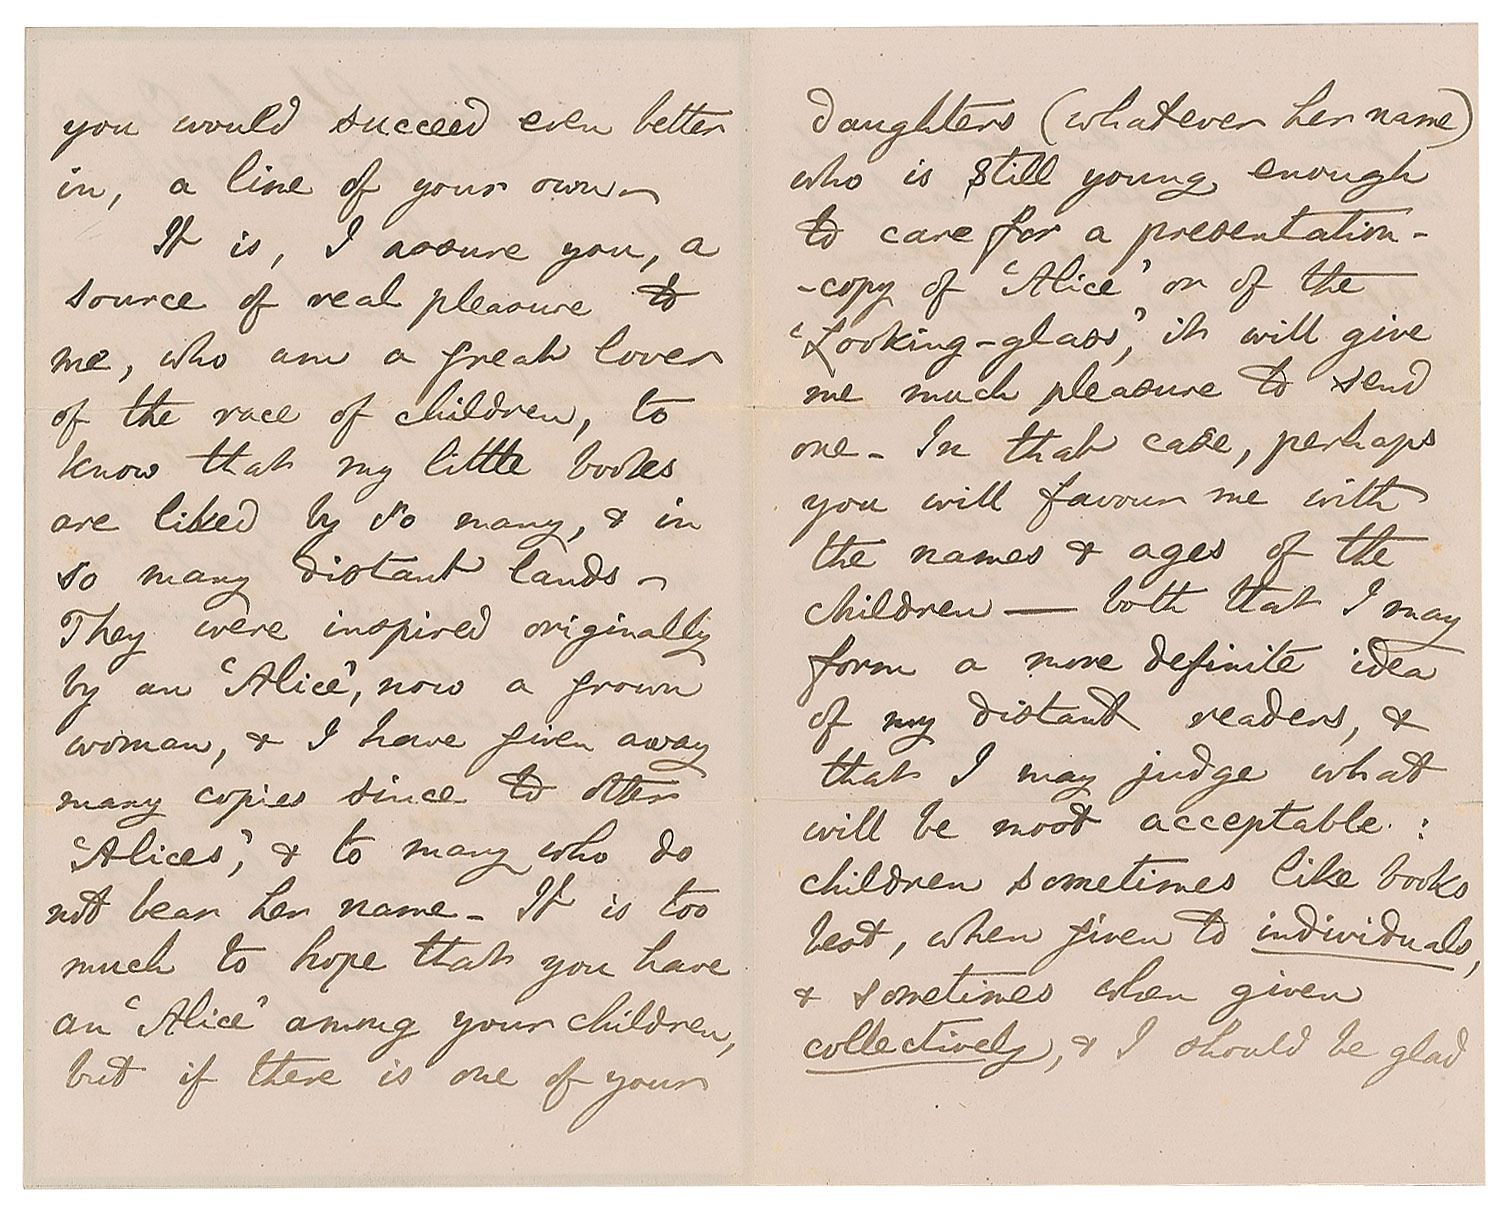 you would succeed even better
in, a line of your own –
It is, I assure you, a
source of real pleasure to
me, who am a great lover
of the race of children, to
know that my little books
are liked by so many, & in
so many distant lands –
They were inspired originally
by an 'Alice', now a grown
woman, & I have given away
many copies since to other
'Alices', & to many who do
not bear her name – It is too
much to hope that you have
an 'Alice' among your children,
but if there is one of your
daughters (whatever her name)
who is still young enough
to care for a presentation-
-copy of 'Alice' or of the
'Looking-glass', it will give
me much pleasure to send
one – In that case, perhaps
you will favour me with
the names & ages of the
children — both that I may
form a more definite idea
of my distant readers, &
that I may judge what
will be most acceptable :
children sometimes like books
best, when given to individuals,
& sometimes when given
collectively, & I should be glad